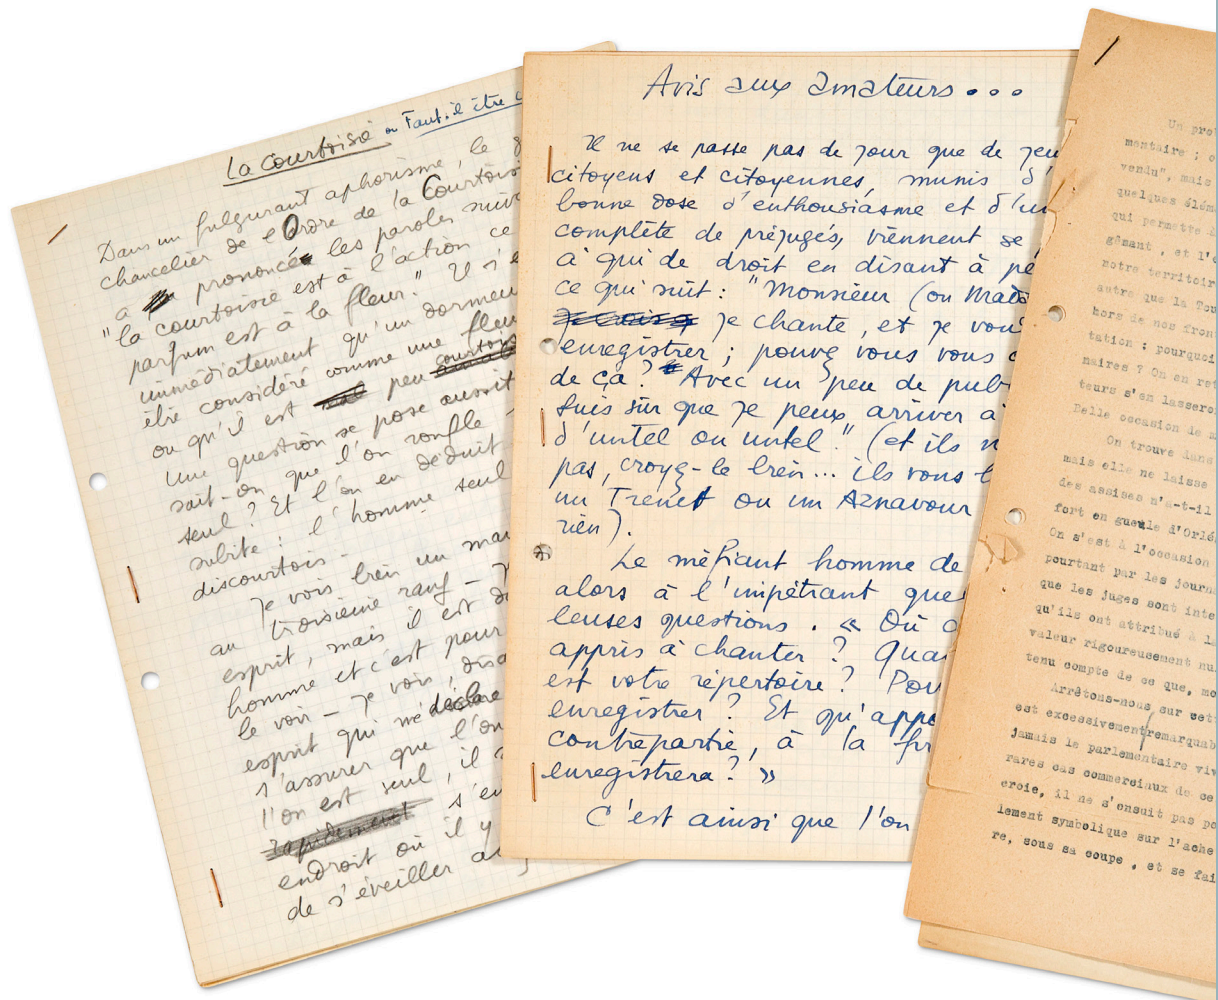 La Courtoisie ou Faut-il être c
Dans un fulgurant aphorisme, le g
chancelier de l'Ordre de la Courtoisi
a prononcé les paroles suiv
"la courtoisie est à l'action ce
parfum est à la fleur." Il s'e
immédiatement qu'un dormeu
être considéré comme une fleu
ou qu'il est peu courtois
Une question se pose aussit
sait-on que l'on ronfle
seul ? Et l'on en déduit
subito : l'homme seul
discourtois -
Je vois bien un mau
au troisième rang - J
esprit, mais il est d
homme et c'est pour
le voir - je vois, disa
esprit qui me déclare
s'assurer que l'on
l'on est seul, il s
rapidement s'en
endroit où il y
de s'éveiller a
Avis aux amateurs...
Il ne se passe pas de jour que de jeu
citoyens et citoyennes, munis d'
bonne dose d'enthousiasme et d'un
complète de préjugés, viennent se
à qui de droit en disant à pe
ce qui suit : "Monsieur (ou Mada
je chante, et je vou
enregistrer ; pouvez vous vous o
de ça ? Avec un peu de pub
suis sûr que je peux arriver à
d'untel ou untel." (et ils n
pas, croyez-le bien... ils vous l
un Trenet ou un Aznavour
rien).
Le méfiant homme de
alors à l'impétrant que
leuses questions. « Où a
appris à chanter ? Qua
est votre répertoire ? Pou
enregistrer ? Et qu'appo
contrepartie, à la fir
enregistrera ? »
C'est ainsi que l'on
Un pro
mentaire ; o
vendu", mais
quelques élém
qui permette d
gêmant , et l'o
notre territoir
autre que la Tou
hors de nos front
tation : pourquoi
naires ? On en ret
teurs s'en lasseron
Belle occasion de m
On trouve dans
mais elle ne laisse
des assises n'a-t-il
fort en gueule d'Orlé
On s'est à l'occasion
pourtant par les journ
que les juges sont inte
qu'ils ont attribué à la
valeur rigoureusement nu
tenu compte de ce que, mo
Arrêtons-nous sur cett
est excessivement remarquab
jamais le parlementaire viv
rares cas commerciaux de ce
croie, il ne s'ensuit pas po
lement symbolique sur l'ache
re, sous sa coupe , et se fai